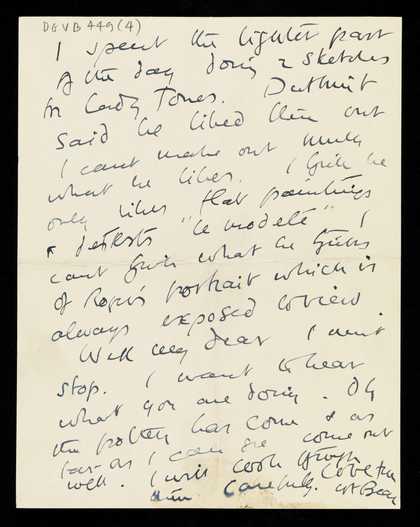 DGVB 449 (4)
I spent the lighter part
of the day doing 2 sketches
for Lady Jones. Duthuit
said he liked them but
I cant make out much
what he likes. I think he
only likes flat paintings
& detests "le modelé" I
cant think what he thinks
of Roger's portrait which is
always exposed to view.
Well my dear I must
stop. I want to hear
what you are doing. Oh
the pottery has come & as
far as I can see come out
well. I will look through
them carefully. Love from
yr Bear